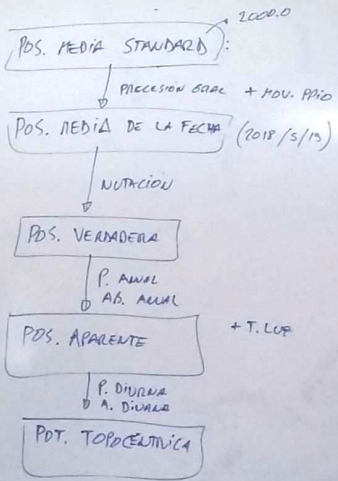 2000.0
POS. MEDIA STANDARD :
PRECESION GRAL + MOV. PPIO
POS. MEDIA DE LA FECHA (2018/5/19)
NUTACIÓN
POS. VERDADERA
P. ANUAL
AB. ANUAL
POS. APARENTE + T. LUZ
P. DIURNA
A. DIURNA
POT. TOPOCÉNTRICA